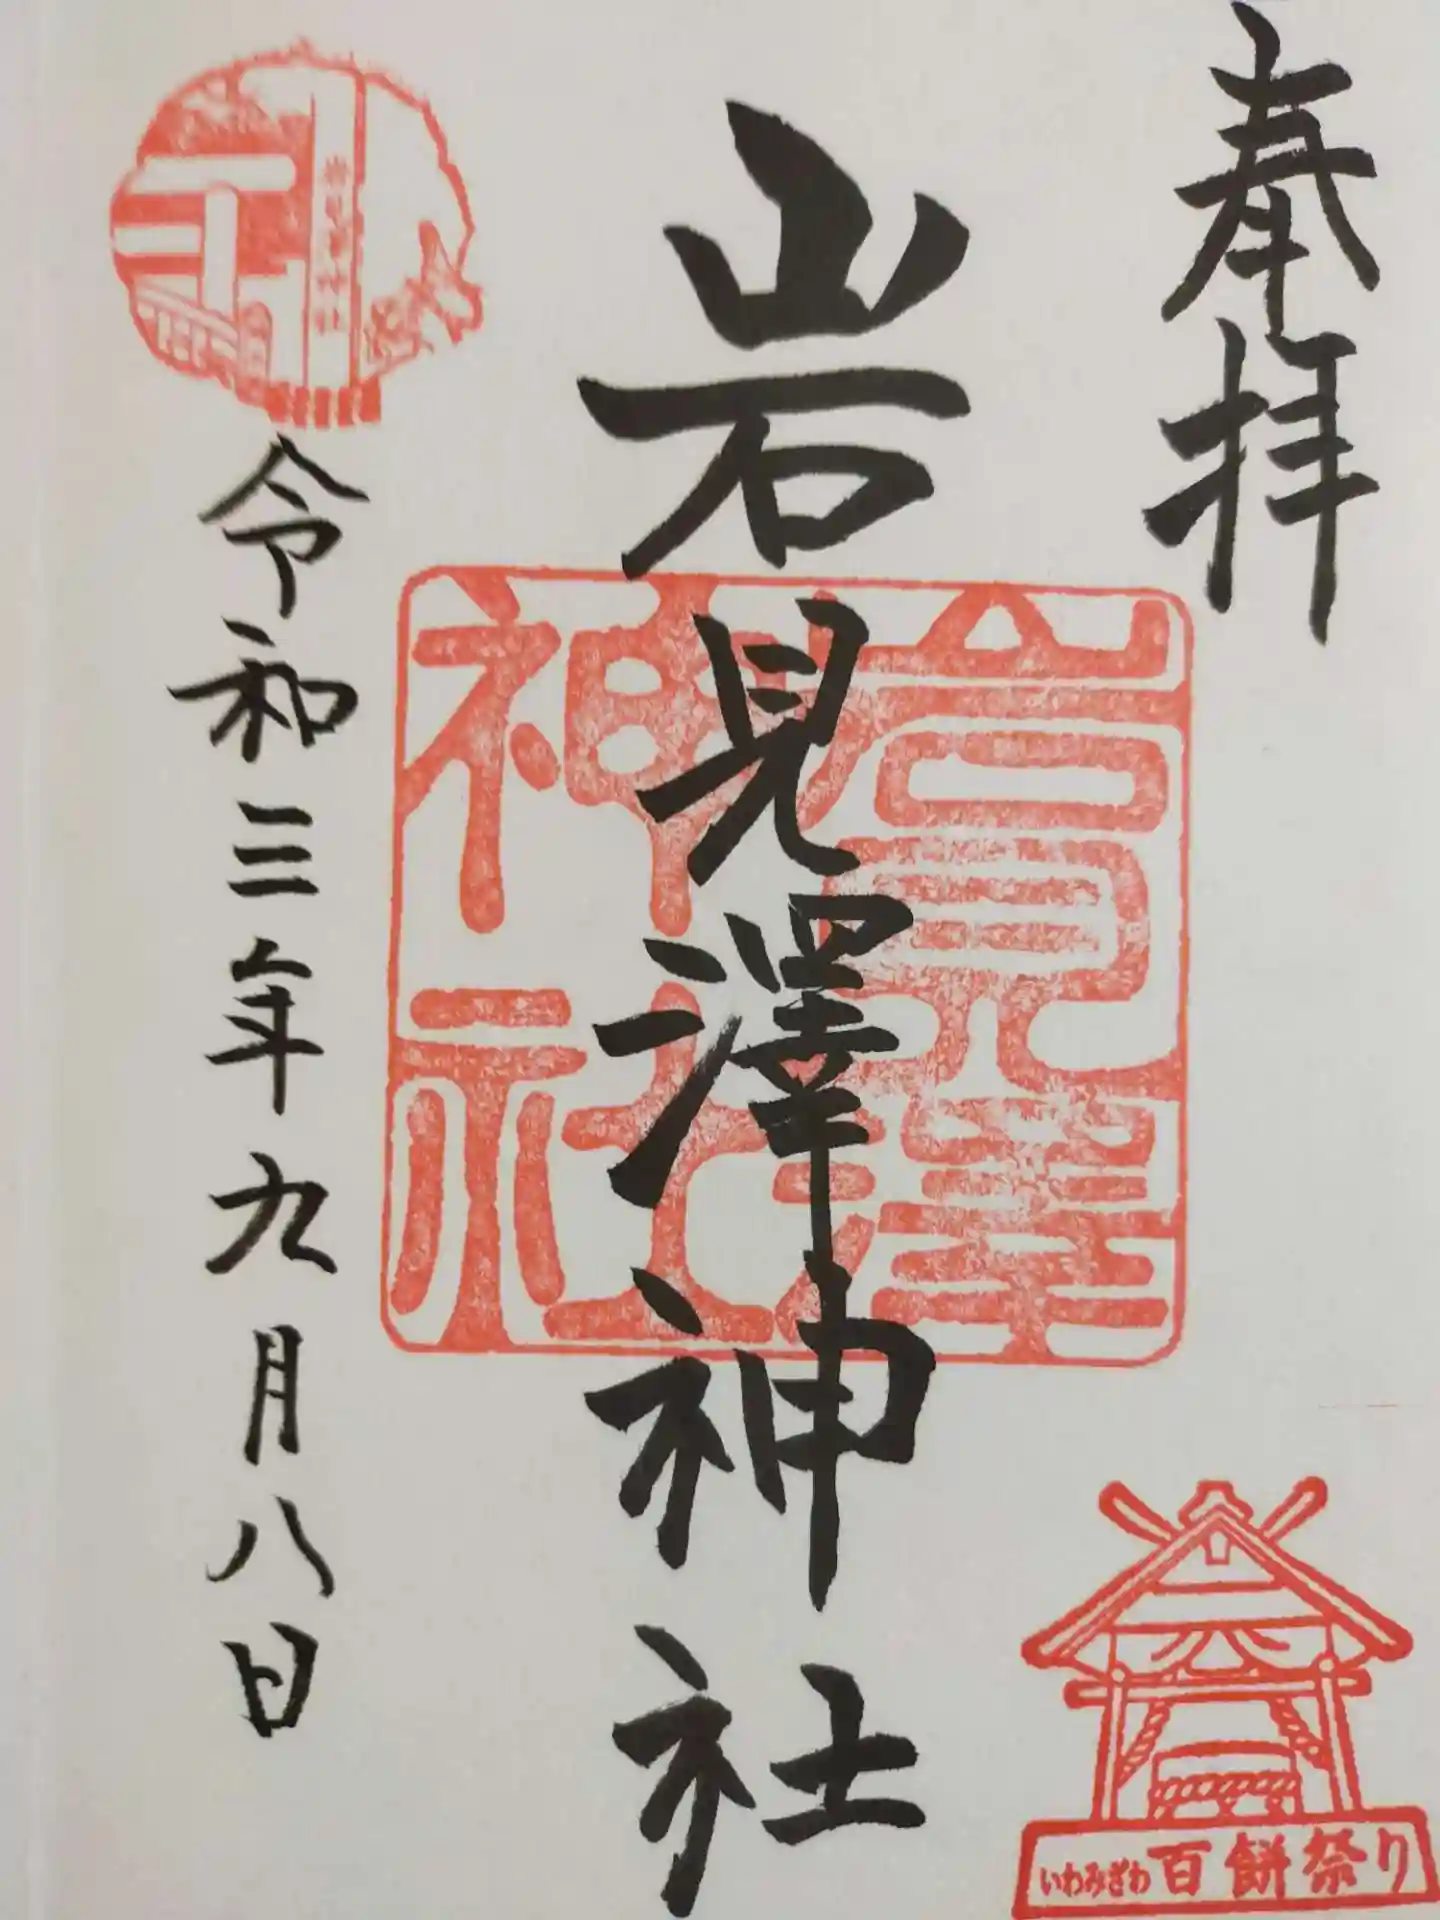 奉拝
岩見澤神社
岩見澤神社
令和三年九月八日
いわみざわ 百餅祭り